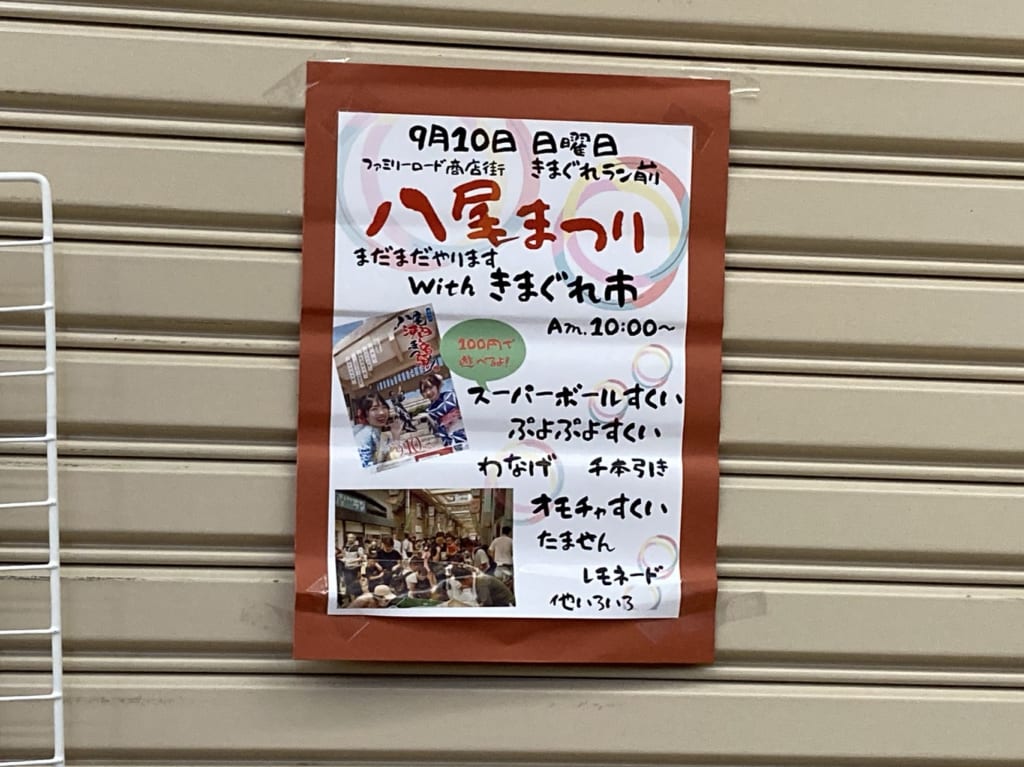 9月10日 日曜日
ファミリーロード商店街 きまぐれラン前
八尾まつり
まだまだやります
With きまぐれ市
Am.10:00〜
100円で
遊べるよ!
スーパーボールすくい
ぷよぷよすくい
わなげ 千本引き
オモチャすくい
たません
レモネード
他いろいろ